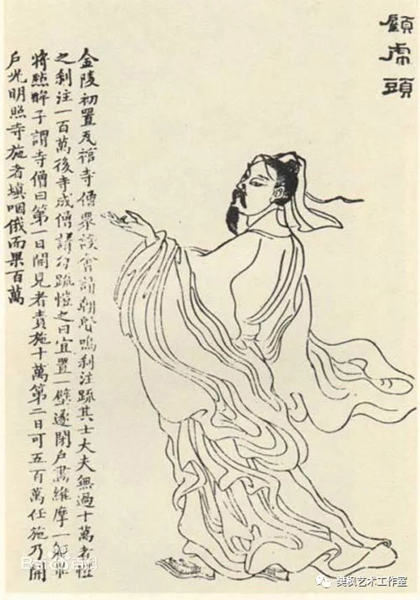 顧虎頭
金陵初置瓦棺寺僧眾設會請朝賢鳴刹注疏其士大夫無過十萬者愷
之刹注一百萬後寺成僧請勾疏愷之曰宜置一壁遂閉戶畫維摩一
將點眸子謂寺僧曰第一日開見者責施十萬第二日可五百萬任施乃開
戶光明照寺施者填咽俄而果百萬
Bai百科
樊枫艺术工作室